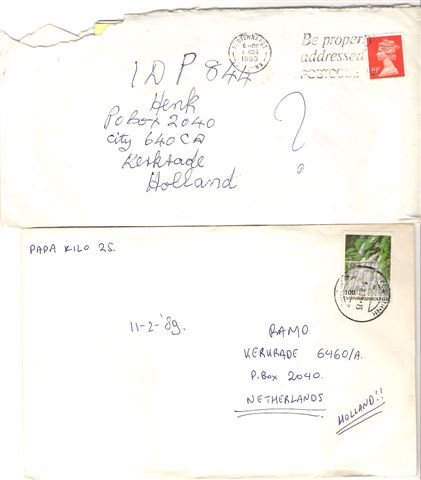 6-PM
1989
Be properly
addressed
POSTCODE
19
IDP 844
Henk
PO Box 2040
City 640CA
Kerkrade
Holland
?
PAPA KILO 25.
100
11-2-'89.
RAMO
KERKRADE 6460/A.
P.Box 2040.
NETHERLANDS
HOLLAND!!